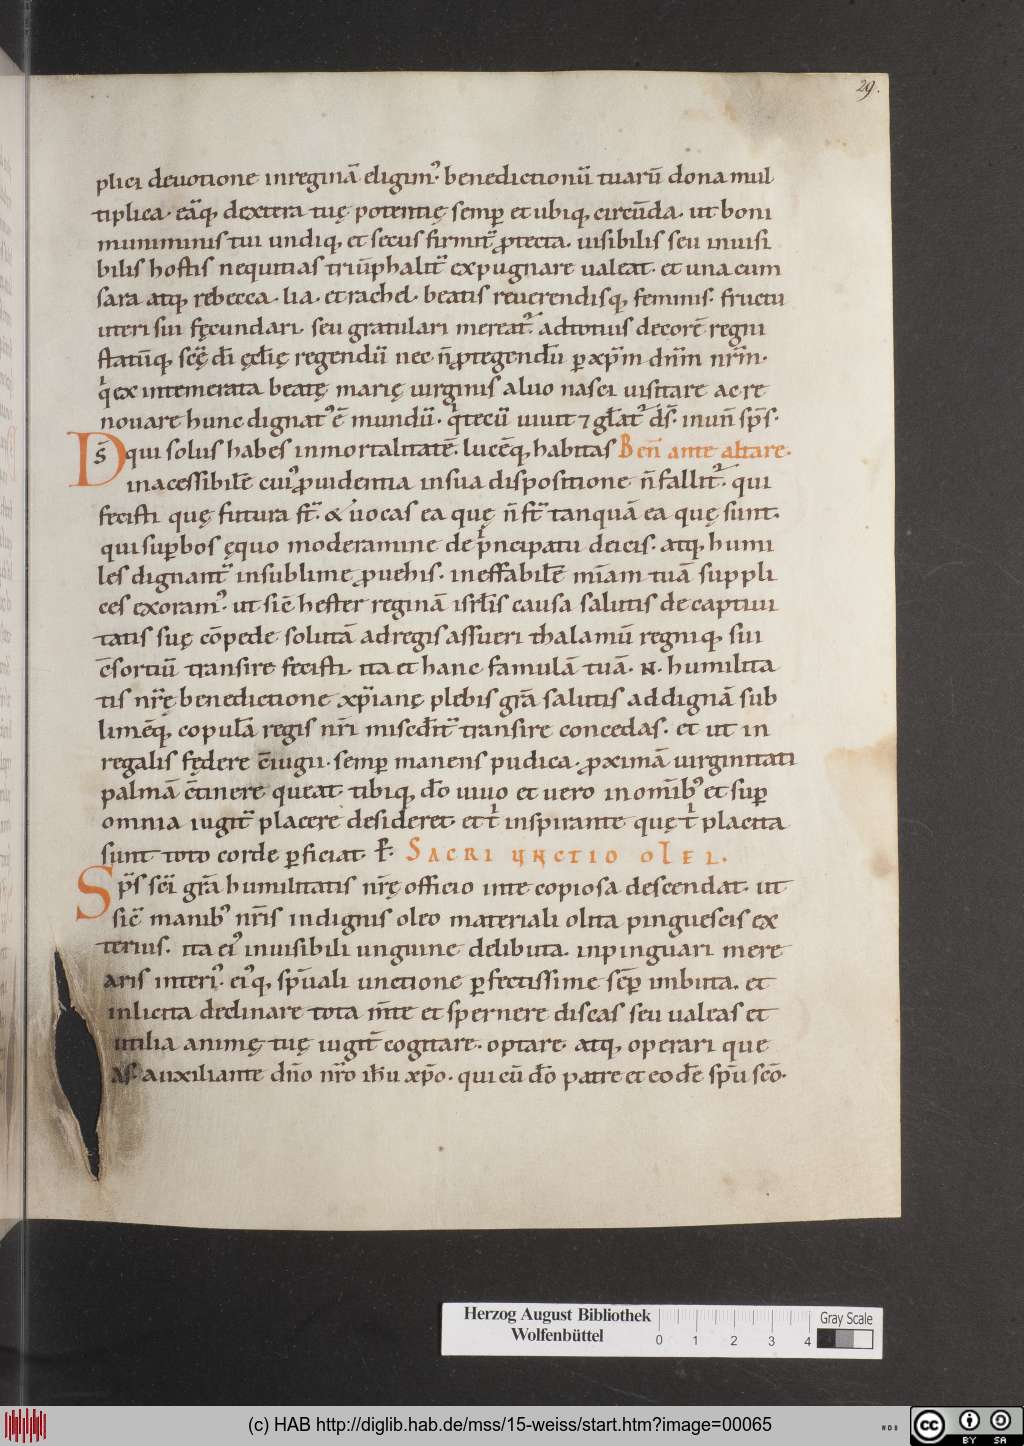 29.
plici deuotione inreginā eligim᾽ benedictionū tuarū dona mul
tiplica· eāq, dextera tuę potentię semp̱ et ubiq, circūda· ut boni
muniminis tui undiq, et secus firmit̄ ꝓtecta· uisibilis seu inuisi
bilis hostis nequitias triūphalit̄ expugnare ualeat· et una cum
sara atq, rebecca· lia· et rachel· beatis reuerendisq, feminis· fructu
uteri sui fęcundari· seu gratulari mereat᷑· adtotius decorē regni
statūq, scę̄ dī ęcl̄ię regendū nec n̄ ꝓtegendū ꝑ xp̄m dn̄m nr̄m·
qͥ ex intemerata beatę marię uirginis aluo nasci uisitare ac re
nouare hunc dignat᾽ ē mundū· qͥ tecū uiuit ⁊ gl̄at᷑ d̄s· inun̄ sp̄s·
D̄s qui solus habes inmortalitatē· lucēq, habitas Ben̄ ante altare·
inacessibilē cui᾽ ꝓuidentia insua dispositione n̄ fallit᷑· qui
fecisti quę futura st̄· & uocas ea quę n̄ st̄ tanquā ea quę sunt·
qui suꝑbos ęquo moderamine de pͥncipatu deicis· atq, humi
les dignant̄ insublime ꝓuehis· ineffabilē mīam tuā suppli
ces exoram᾽ ut sic̄ hester reginā isrl̄is causa salutis de captiui
tatis suę cōpede solutā adregis assueri thalamū regniq, sui
c̄sortiū transire fecisti· ita et hanc famulā tuā· N· humilita
tis nr̄ę benedictione xp̄ianę plebis gr̄a salutis ad dignā sub
limēq, copulā regis nr̄i misedit̄ transire concedas· et ut in
regalis fędere c̄iugii· semp̱ manens pudica· ꝓximā uirginitati
palmā c̄tinere queat· tibiq, dō uiuo et uero inomīb᾽ et sup̱
omnia iugit̄ placere desideret· et tͥ inspirante quę tͥ placita
sunt toto corde ꝑficiat· P̄· SACRI UNCTIO OLEI·
Sp̄s sc̄i gr̄a humilitatis nr̄ę officio inte copiosa descendat· ut
sic̄ manib᾽ nr̄is indignis oleo materiali olita pinguescis ex
terius· ita ei᾽ inuisibili unguine delibuta· inpinguari mere
aris interi᾽· ei᾽q, sp̄uali unctione ꝑfectissime sēp̱ imbuta· et
inlicita declinare tota m̄te et spernere discas seu ualeas et
utilia animę tuę iugit̄ cogitare· optare· atq, operari que
as· auxiliante dn̄o nr̄o ih̄u xp̄o· qui cū dō patre et eodē sp̄u scō·
Herzog August Bibliothek
Wolfenbüttel
0 1 2 3 4
Gray Scale
(c) HAB http://diglib.hab.de/mss/15-weiss/start.htm?image=00065
cc BY SA